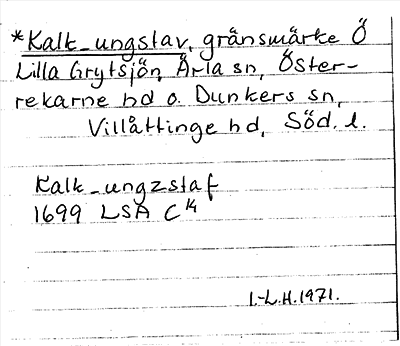 *Kalk-ungstav, gränsmärke Ö
Lilla Grytsjön, Ärla sn, Öster-
rekarne hd o. Dunkers sn,
Villåttinge hd, Söd. l.
Kalk-ungzstaf
1699 LSA C14
I.-L.H.1971.